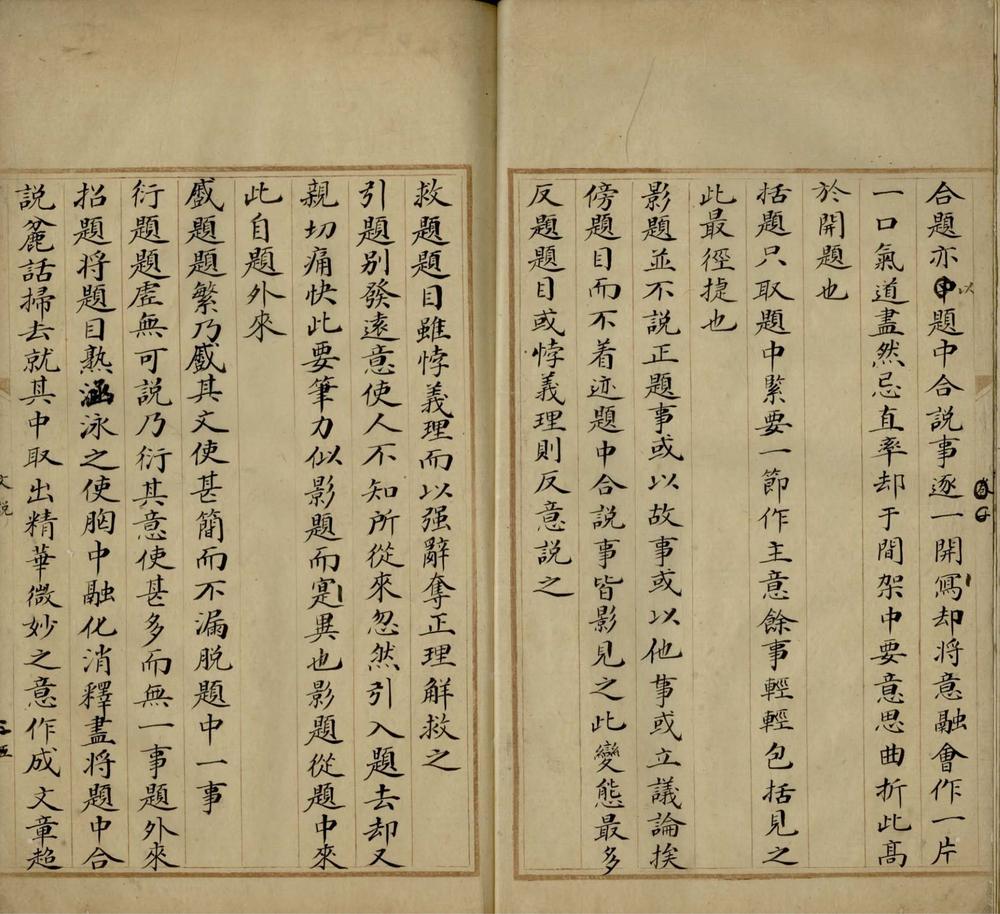 合題亦由題中合説事逐一開寫却將意融會作一片
以
一口氣道盡然忌直率却于間架中要意思曲折此髙
於開題也
括題只取題中緊要一節作主意餘事輕輕包括見之
此最徑捷也
影題並不説正題事或以故事或以他事或立議論挨
傍題目而不着迹題中合説事皆影見之此變態最多
反題題目或悖義理則反意説之
救題題目雖悖義理而以强辭奪正理解救之
引題别發遠意使人不知所從來忽然引入題去却又
親切痛快此要筆力似影題而寔異也影題從題中來
此自題外來
蹙題題繁乃蹙其文使甚簡而不漏脱題中一事
衍題題虚無可説乃衍其意使甚多而無一事題外來
招題將題目熟涵泳之使胸中融化消釋盡將題中合
説麄話掃去就其中取出精華微妙之意作成文章超
文説